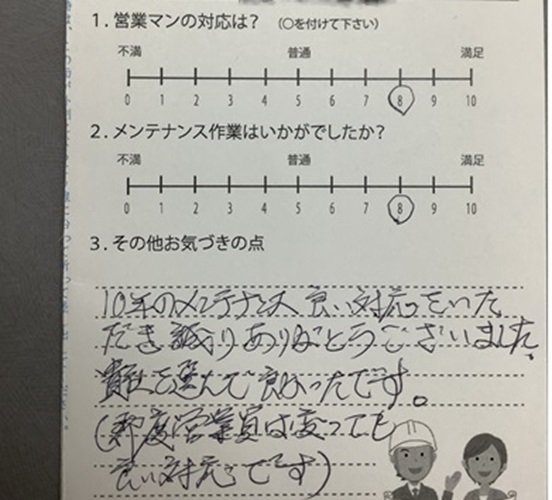 1. 営業マンの対応は? (○を付けて下さい)
不満 普通 満足
0 1 2 3 4 5 6 7 8 9 10
2. メンテナンス作業はいかがでしたか?
不満 普通 満足
0 1 2 3 4 5 6 7 8 9 10
3. その他お気づきの点
10年のメンテナンス 良い対応をいた
だき 誠に ありがとうございました。
貴社を選んで良かったです。
(都度営業員は変っても
良い対応です)